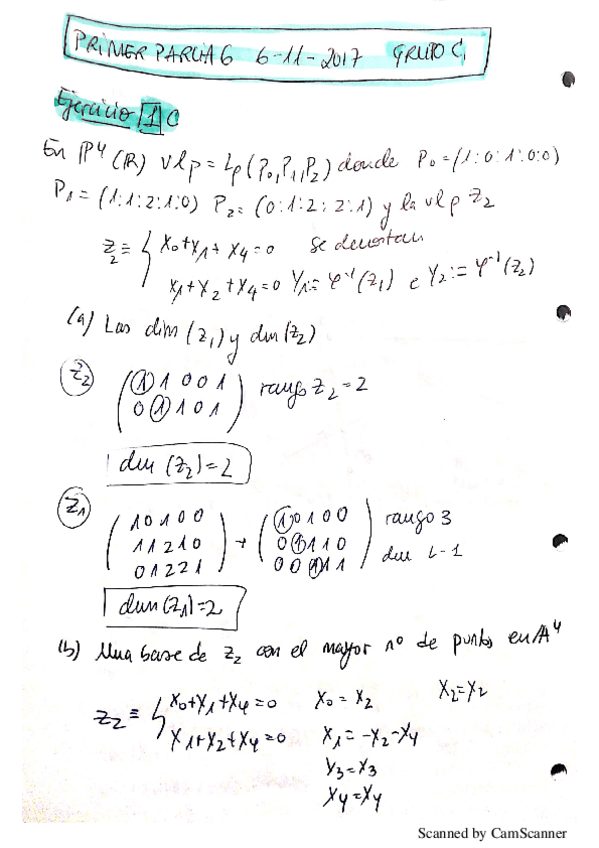 PRIMER PARCIAL 6-11-2017 GRUPO C
Ejercicio 1 C
En P⁴(R) vlp = Lp(P₀,P₁,P₂) donde P₀=(1:0:1:0:0)
P₁=(1:1:2:1:0) P₂=(0:1:2:2:1) y la vlp Z₂
Z₂ ≡ { x₀+x₁+x₄=0 se denotan
x₁+x₂+x₄=0 Y₁:=φ⁻¹(Z₁) e Y₂:=φ⁻¹(Z₂)
(a) Las dim(Z₁) y dim(Z₂)
Z₂ (1 1 0 0 1
0 1 1 0 1) rango Z₂=2
dim(Z₂)=2
Z₁ (1 0 1 0 0 → (1 0 1 0 0 rango 3
1 1 2 1 0 0 1 1 1 0 dim L-1
0 1 2 2 1) 0 0 1 1 1)
dim(Z₁)=2
(b) Una base de Z₂ con el mayor nº de puntos en A⁴
Z₂ ≡ { x₀+x₁+x₄=0 x₀=x₂ x₂=x₂
x₁+x₂+x₄=0 x₁=-x₂-x₄
x₃=x₃
x₄=x₄
Scanned by CamScanner